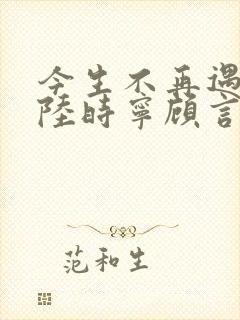 今生不再遇
陸時寧顧言
范和生